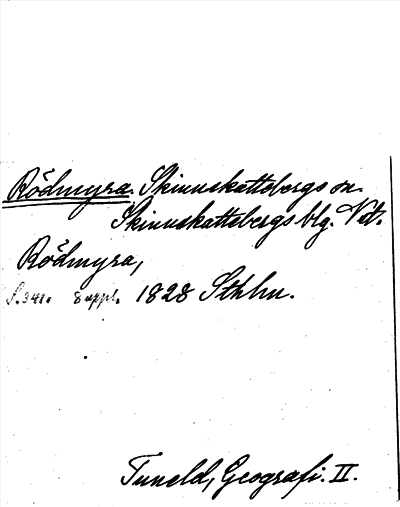 Rödmyra. Skinnskattebergs sn.
Skinnskattebergs blg. Vstm.
Rödmyra,
S. 341. 8 uppl. 1828 Sthlm.
Tuneld, Geografi. II.